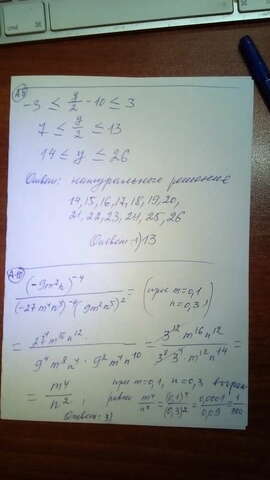 А9
-3 ≤ y/2 - 10 ≤ 3
7 ≤ y/2 ≤ 13
14 ≤ y ≤ 26
Ответ: натуральные решения
14, 15, 16, 17, 18, 19, 20,
21, 22, 23, 24, 25, 26
Ответ: 1) 13
А-10
(-9m²n)⁻⁴ / (-27m⁴n³)⁻⁴(-9m²n⁵)² = (при m=0,1 n=0,3)
= 27⁴m¹⁶n¹² / 9⁴m⁸n⁴ · 9²m⁴n¹⁰ = 3¹²m¹⁶n¹² / 3⁸·3⁴m¹²n¹⁴ =
= m⁴/n² ; при m=0,1, n=0,3
равно m⁴/n² = (0,1)⁴/(0,3)² = 0,0001/0,09 = 1/900
Ответ: 3)